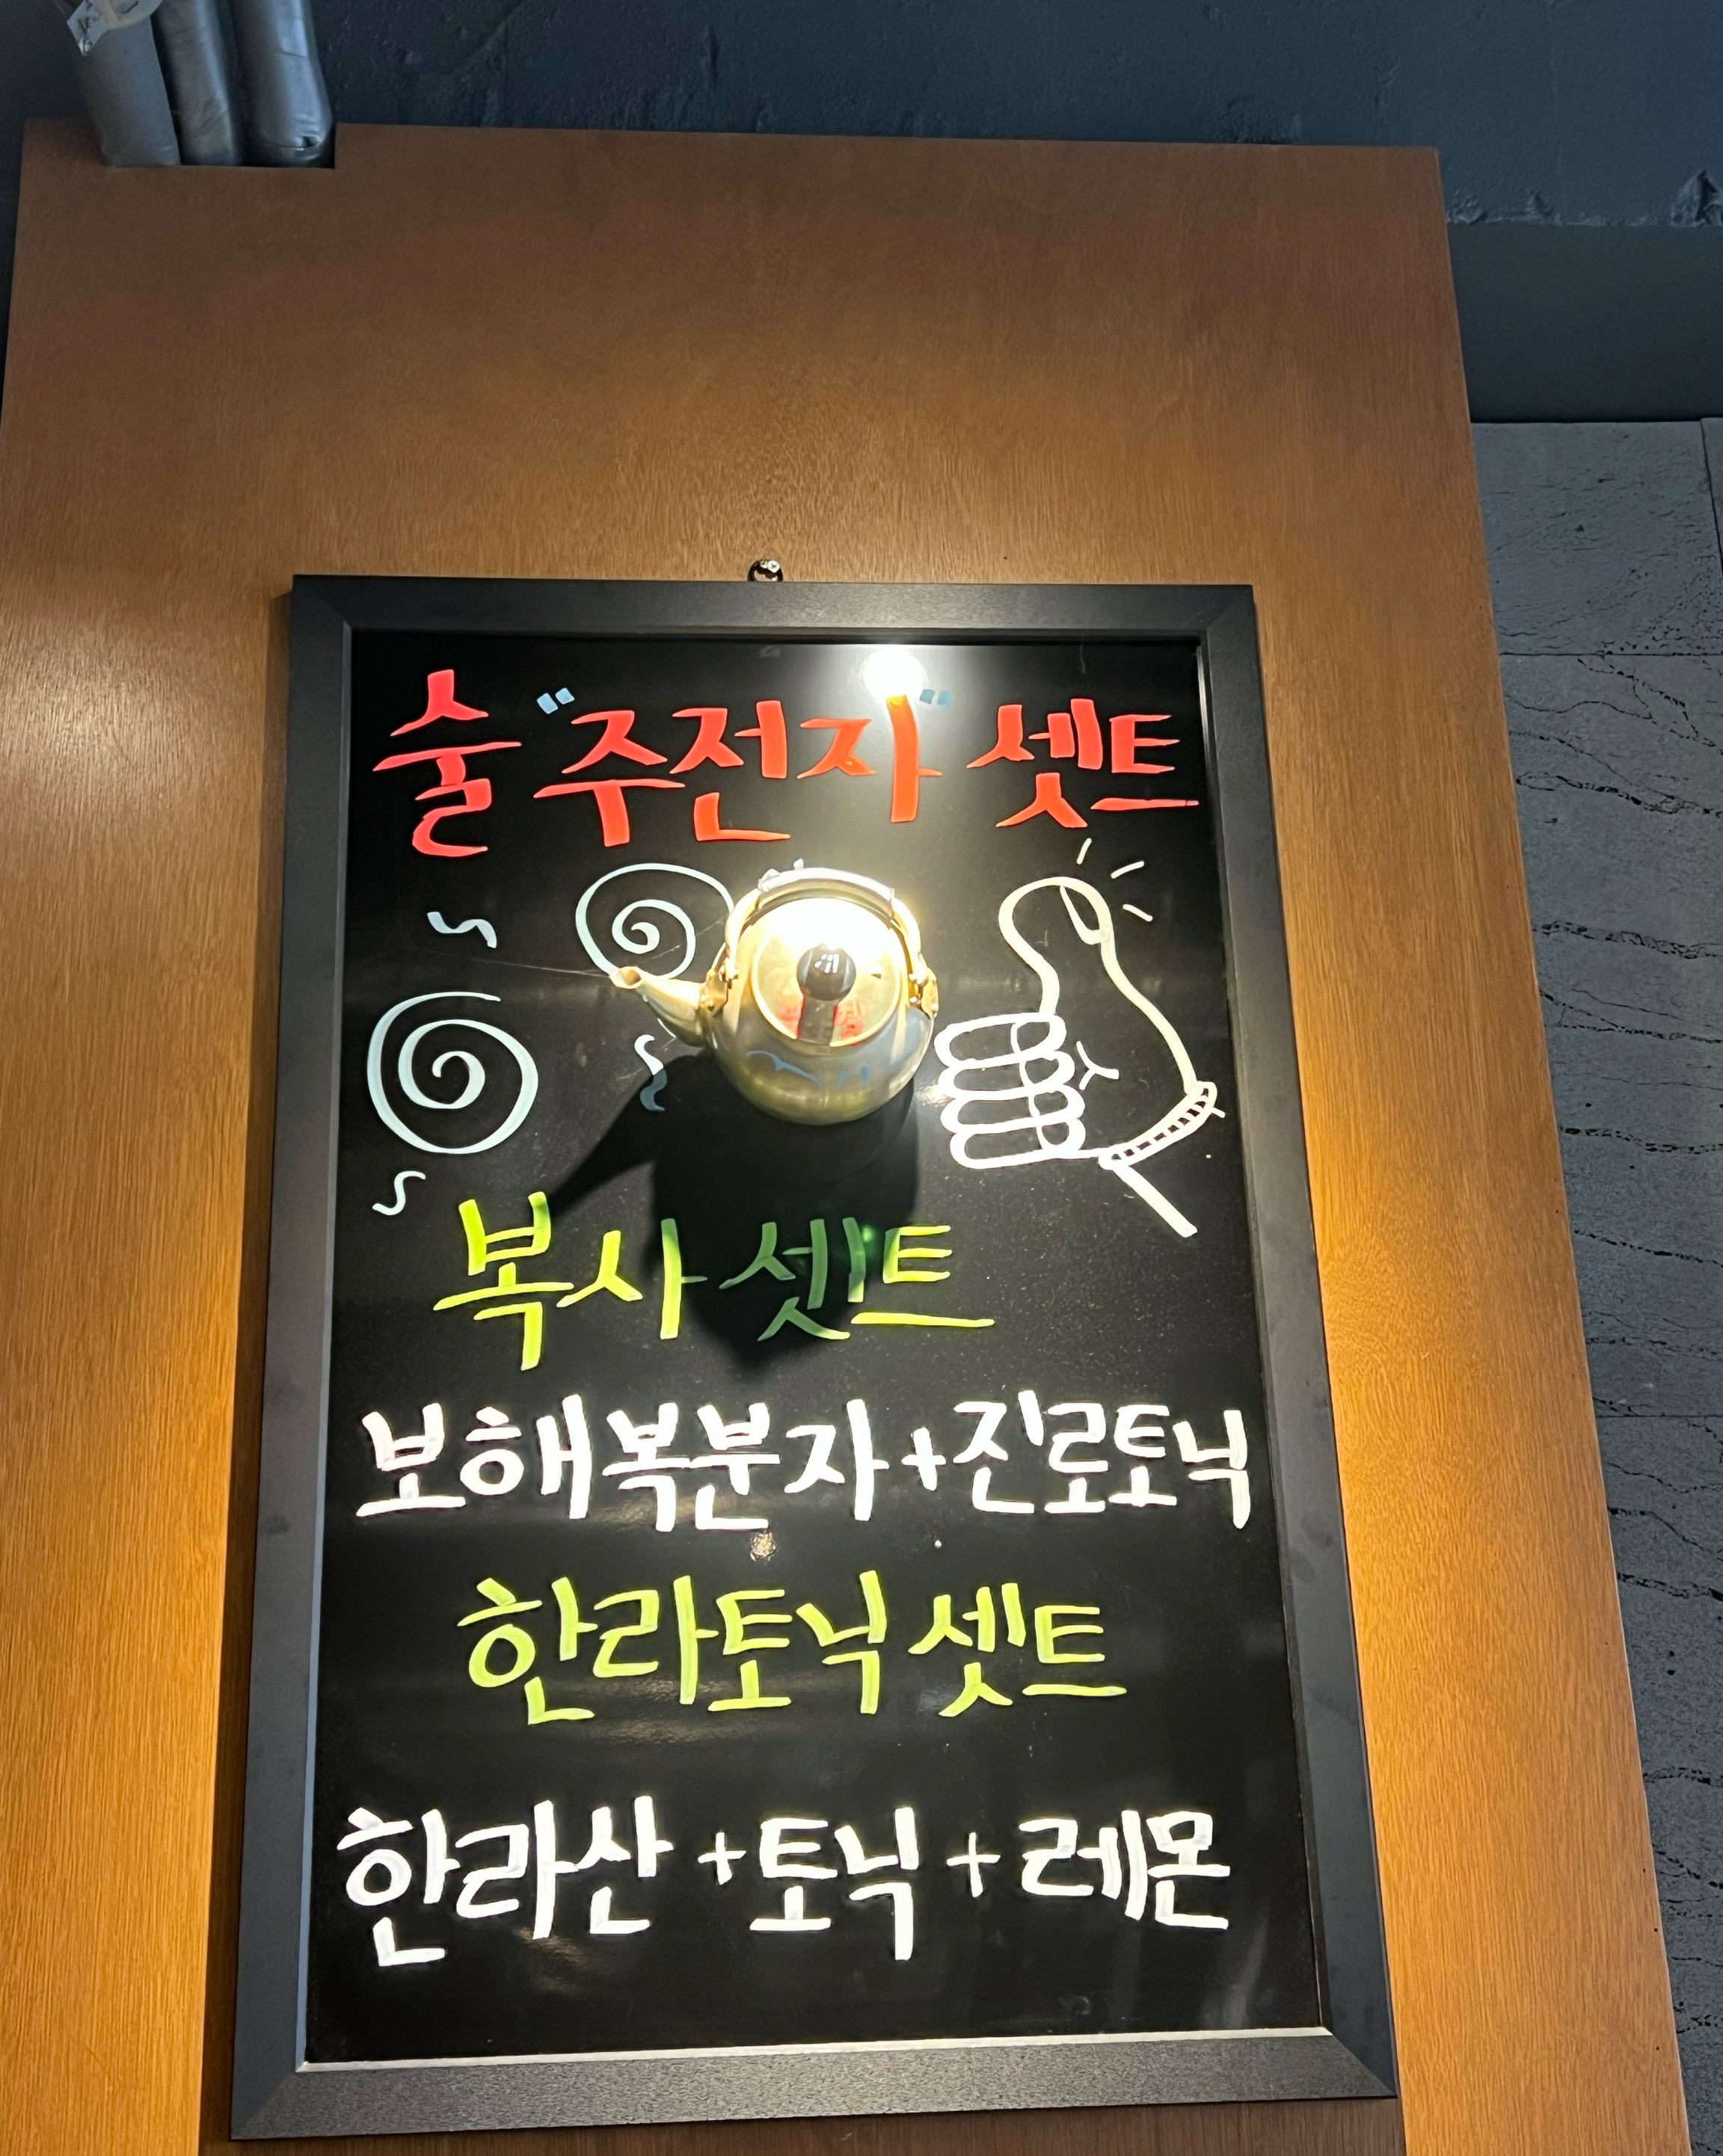 술 "주전자" 셋트
복사 셋트
보해복분자+진로토닉
한라토닉 셋트
한라산 + 토닉 + 레몬